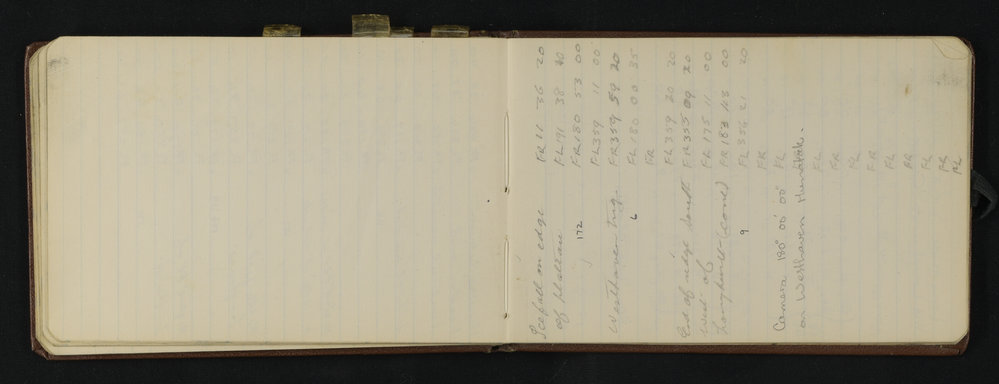 Icefall on edge FR 11 36 20
of plateau FL 191 38 20
172 FR 180 53 00
FL 359 11 00
Westhaven Trig. FR 359 59 20
6 FL 180 00 35
FR
FL 359 20 20
End of ridge south FR 355 09 20
West of FR 175 11 00
FR 183 45 00
9 FL 356 21 20
FR
Camera 180° 00' 00" FL
on Westhaven Nunatak.
FL
FR
FL
FR
FL
FR
FL
FR
FL